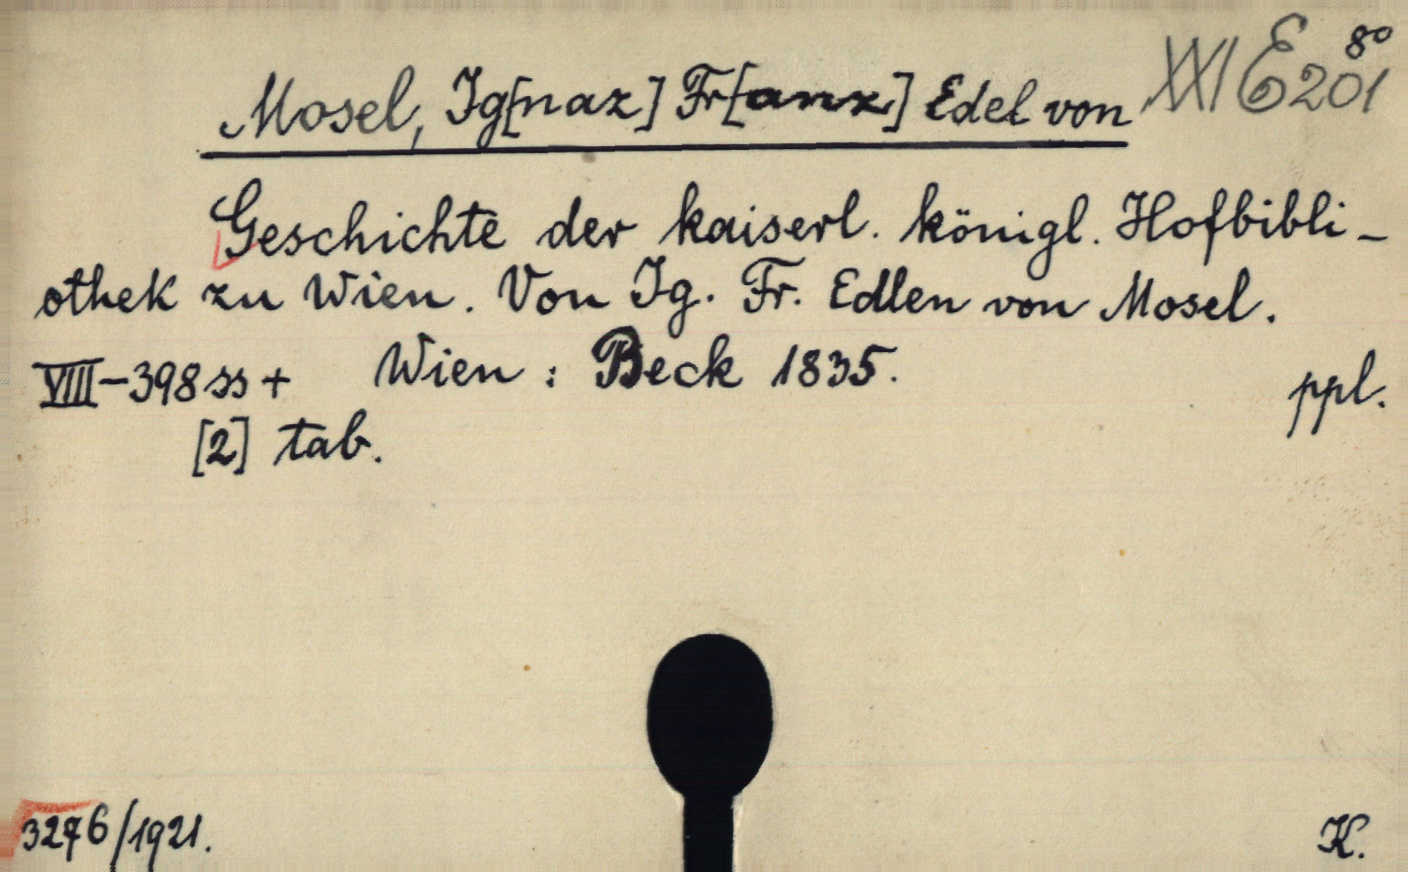 XXI E 201 8°
Mosel, Ig[naz] Fr[anz] Edel von
Geschichte der kaiserl. königl. Hofbibli-
othek zu Wien. Von Ig. Fr. Edlen von Mosel.
VIII-398 ss + Wien : Beck 1835. ppl.
[2] tab.
3276/1921. K.